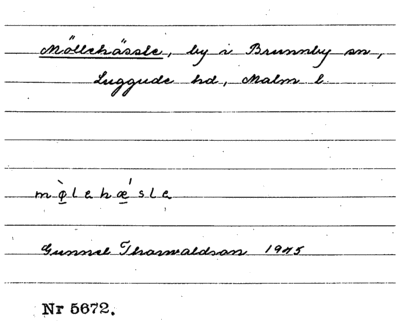 Möllehässle, by i Brunnby sn,
Luggude hd, Malm l
mø̀lehǽsle
Gunnel Thorwaldson 1945
Nr 5672.